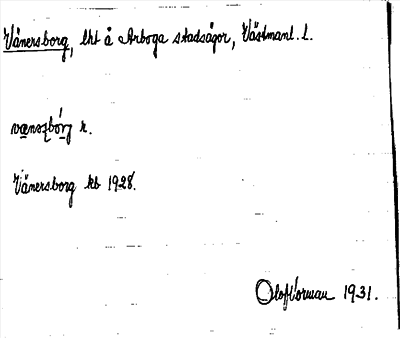 Vänersborg, lht å Arboga stadsägor, Västmanl. l.
vænsʐbórj r.
Vänersborg kb 1928.
Olof Norman 1931.